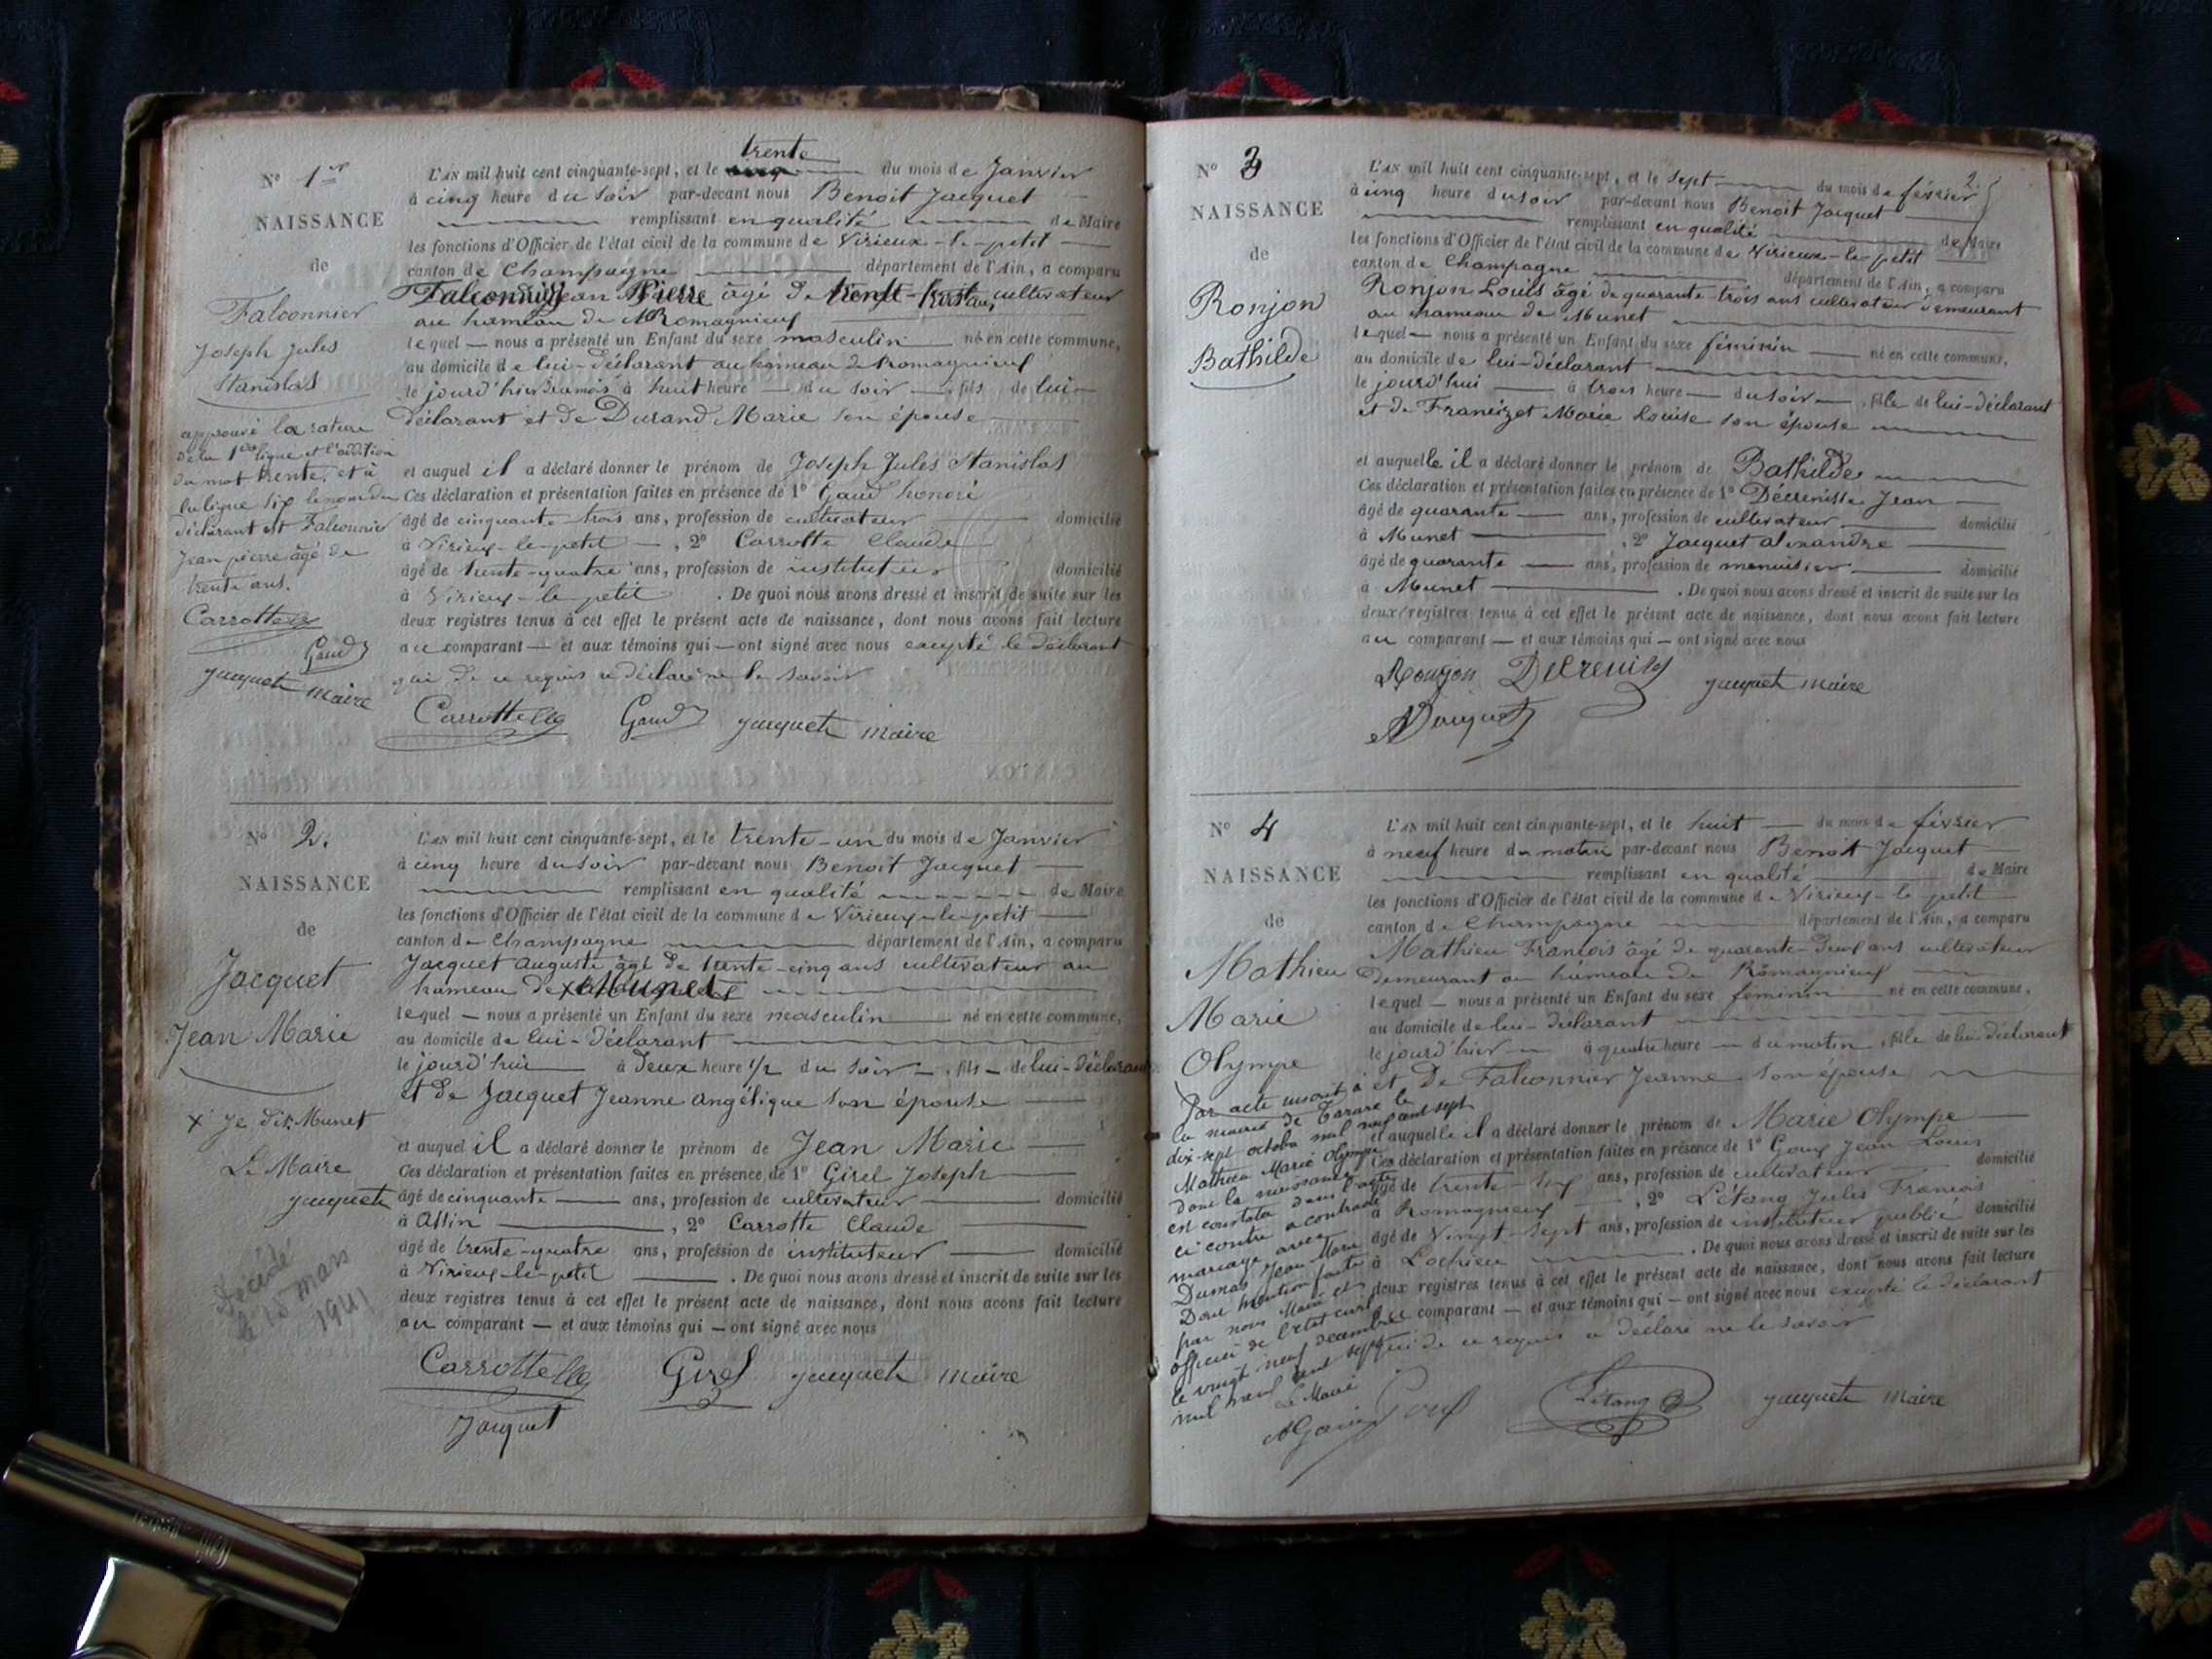 N° 1er
NAISSANCE
de
Falconnier
Joseph Jules
Stanislas
approuvé la rature
de la 1ère ligne et l'addition
du mot trente, et à
la ligne six le nom du
déclarant est Falconnier
Jean pierre âgé de
trente ans.
Carrotte
Gaud
Jacquet maire
trente
L'AN mil huit cent cinquante-sept, et le du mois de Janvier
à cinq heure du soir par-devant nous Benoit Jacquet
remplissant en qualité de Maire
les fonctions d'Officier de l'état civil de la commune de Virieux-le-petit
canton de Champagne département de l'Ain, a comparu
Falconnier Jean Pierre âgé de trente ans cultivateur
au hameau de Romagnieux
lequel nous a présenté un Enfant du sexe masculin né en cette commune,
au domicile de lui-déclarant au hameau de Romagnieux
le jourd'hier à huit heure du soir, fils de lui-
déclarant et de Durand Marie son épouse
et auquel il a déclaré donner le prénom de Joseph Jules Stanislas
Ces déclaration et présentation faites en présence de 1° Gaud honoré
âgé de cinquante-trois ans, profession de cultivateur domicilié
à Virieux-le-petit, 2° Carrotte Claude
âgé de trente-quatre ans, profession de instituteur domicilié
à Virieux-le-petit. De quoi nous avons dressé et inscrit de suite sur les
deux registres tenus à cet effet le présent acte de naissance, dont nous avons fait lecture
au comparant et aux témoins qui ont signé avec nous excepté le déclarant
qui de ce requis a déclaré ne le savoir
Carrotte Gaud Jacquet maire
N° 2.
NAISSANCE
de
Jacquet
Jean Marie
x Je dis Munet
Le Maire
Jacquet
Décédé
le 18 mars
1941
L'AN mil huit cent cinquante-sept, et le trente-un du mois de Janvier
à cinq heure du soir par-devant nous Benoit Jacquet
remplissant en qualité de Maire
les fonctions d'Officier de l'état civil de la commune de Virieux-le-petit
canton de Champagne département de l'Ain, a comparu
Jacquet auguste âgé de trente-cinq ans cultivateur au
hameau de x Munet
lequel nous a présenté un Enfant du sexe masculin né en cette commune,
au domicile de lui-déclarant
le jourd'hui à deux heure 1/2 du soir, fils de lui-déclarant
et de Jacquet Jeanne angélique son épouse
et auquel il a déclaré donner le prénom de Jean Marie
Ces déclaration et présentation faites en présence de 1° Girel Joseph
âgé de cinquante ans, profession de cultivateur domicilié
à Assin, 2° Carrotte Claude
âgé de trente-quatre ans, profession de instituteur domicilié
à Virieux-le-petit. De quoi nous avons dressé et inscrit de suite sur les
deux registres tenus à cet effet le présent acte de naissance, dont nous avons fait lecture
au comparant et aux témoins qui ont signé avec nous
Carrotte Girel Jacquet maire
Jacquet
2
N° 3
NAISSANCE
de
Ronjon
Bathilde
L'AN mil huit cent cinquante-sept, et le sept du mois de février
à cinq heure du soir par-devant nous Benoit Jacquet
remplissant en qualité de Maire
les fonctions d'Officier de l'état civil de la commune de Virieux-le-petit
canton de Champagne département de l'Ain, a comparu
Ronjon Louis âgé de quarante-trois ans cultivateur demeurant
au hameau de Munet
lequel nous a présenté un Enfant du sexe féminin né en cette commune,
au domicile de lui-déclarant
le jourd'hui à trois heure du soir, fille de lui-déclarant
et de Marie Louise son épouse
et auquelle il a déclaré donner le prénom de Bathilde
Ces déclaration et présentation faites en présence de 1° Jean
âgé de quarante ans, profession de cultivateur domicilié
à Munet, 2° Jacquet alexandre
âgé de quarante ans, profession de menuisier domicilié
à Munet. De quoi nous avons dressé et inscrit de suite sur les
deux registres tenus à cet effet le présent acte de naissance, dont nous avons fait lecture
au comparant et aux témoins qui ont signé avec nous
Ronjon Jacquet maire
Jacquet
N° 4
NAISSANCE
de
Mathieu
Marie
Olympe
Par acte inscrit à
la mairie de Tarare le
dix-sept octobre mil neuf cent sept
Mathieu Marie Olympe
dont la naissance
est constatée dans l'acte
ci contre a contracté
mariage avec
Dumas Jean Marie
Dont mention faite
par nous Maire et
officier de l'état civil
le vingt neuf décembre
mil neuf cent sept
Le Maire
L'AN mil huit cent cinquante-sept, et le huit du mois de février
à neuf heure du matin par-devant nous Benoit Jacquet
remplissant en qualité de Maire
les fonctions d'Officier de l'état civil de la commune de Virieux-le-petit
canton de Champagne département de l'Ain, a comparu
Mathieu François âgé de quarante-deux ans cultivateur
demeurant au hameau de Romagnieux
lequel nous a présenté un Enfant du sexe féminin né en cette commune,
au domicile de lui-déclarant
le jourd'hier à quatre heure du matin, fille de lui-déclarant
et de Falconnier Jeanne son épouse
et auquelle il a déclaré donner le prénom de Marie Olympe
Ces déclaration et présentation faites en présence de 1° Goux Jean Louis
âgé de trente-six ans, profession de cultivateur domicilié
à Romagnieux, 2° Létang Jules François
âgé de vingt-sept ans, profession de instituteur public domicilié
à Lochieu. De quoi nous avons dressé et inscrit de suite sur les
deux registres tenus à cet effet le présent acte de naissance, dont nous avons fait lecture
au comparant et aux témoins qui ont signé avec nous excepté le déclarant
qui de ce requis a déclaré ne le savoir
Goux Létang Jacquet maire